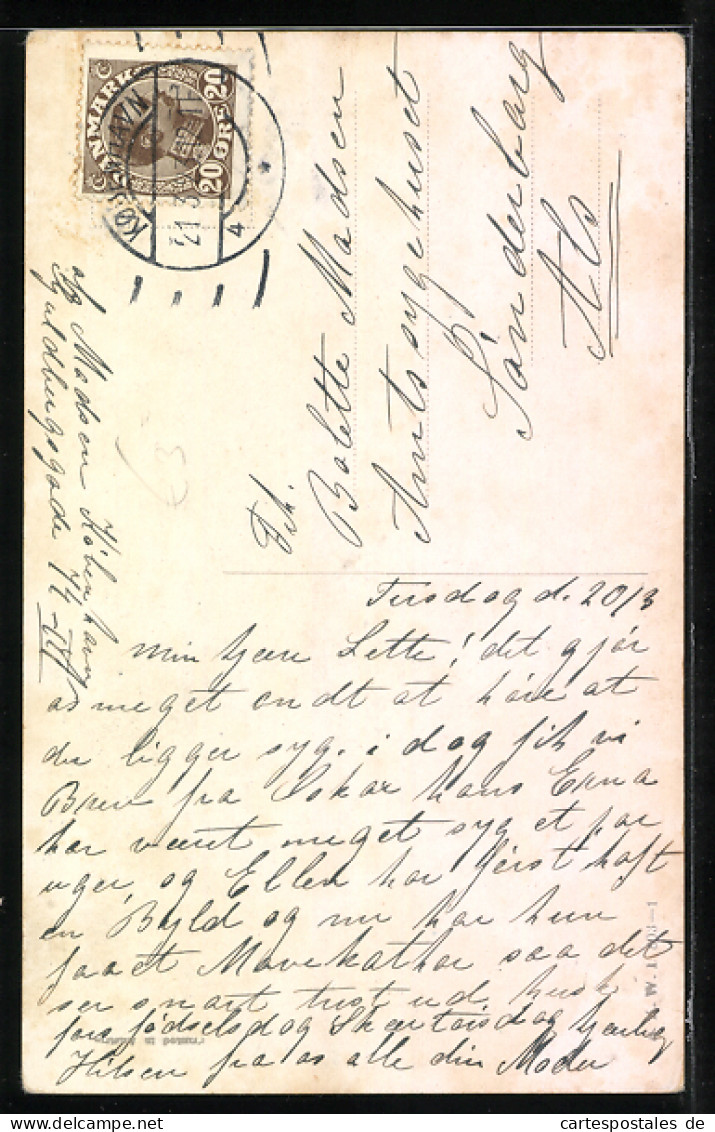 DANMARK
20 ØRE 20
KØBENHAVN
21.3
4
Frk.
Bolette Madsen
Amtssygehuset
Sønderborg
Als
Afs Madsen København
Guldbergsgade 74
Tirsdag d. 20/3
Min kjære Lette! det gjør
os meget ondt at høre at
du ligger syg. i dag fik vi
Brev fra Oskar hans Erna
har været meget syg et par
uger, og Ellen har først haft
en Byld og nu har hun
faaet Mavekathar saa det
ser snart trist ud. husk
fars fødselsdag Skærtorsdag kjærlig
Hilsen fra os alle din Moder
cartespostales de
www.cartespostales.de